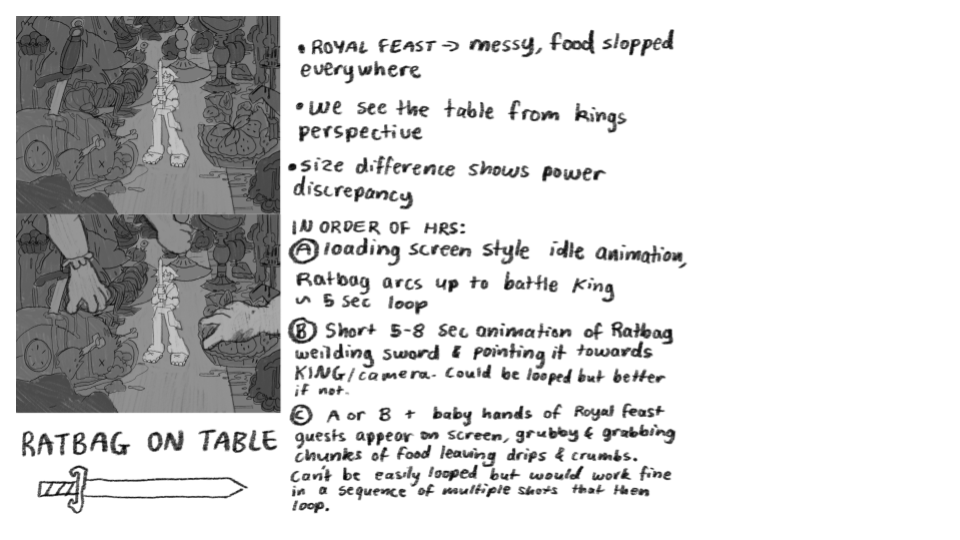 • ROYAL FEAST → messy, food slopped
everywhere
• we see the table from kings
perspective
• size difference shows power
discrepancy
IN ORDER OF HRS:
Ⓐ loading screen style idle animation,
Ratbag arcs up to battle King
~ 5 sec loop
Ⓑ Short 5-8 sec animation of Ratbag
weilding sword & pointing it towards
KING/camera. Could be looped but better
if not.
Ⓒ A or B + baby hands of Royal feast
guests appear on screen, grubby & grabbing
chunks of food leaving drips & crumbs.
Can't be easily looped but would work fine
in a sequence of multiple shots that then
loop.
RATBAG ON TABLE